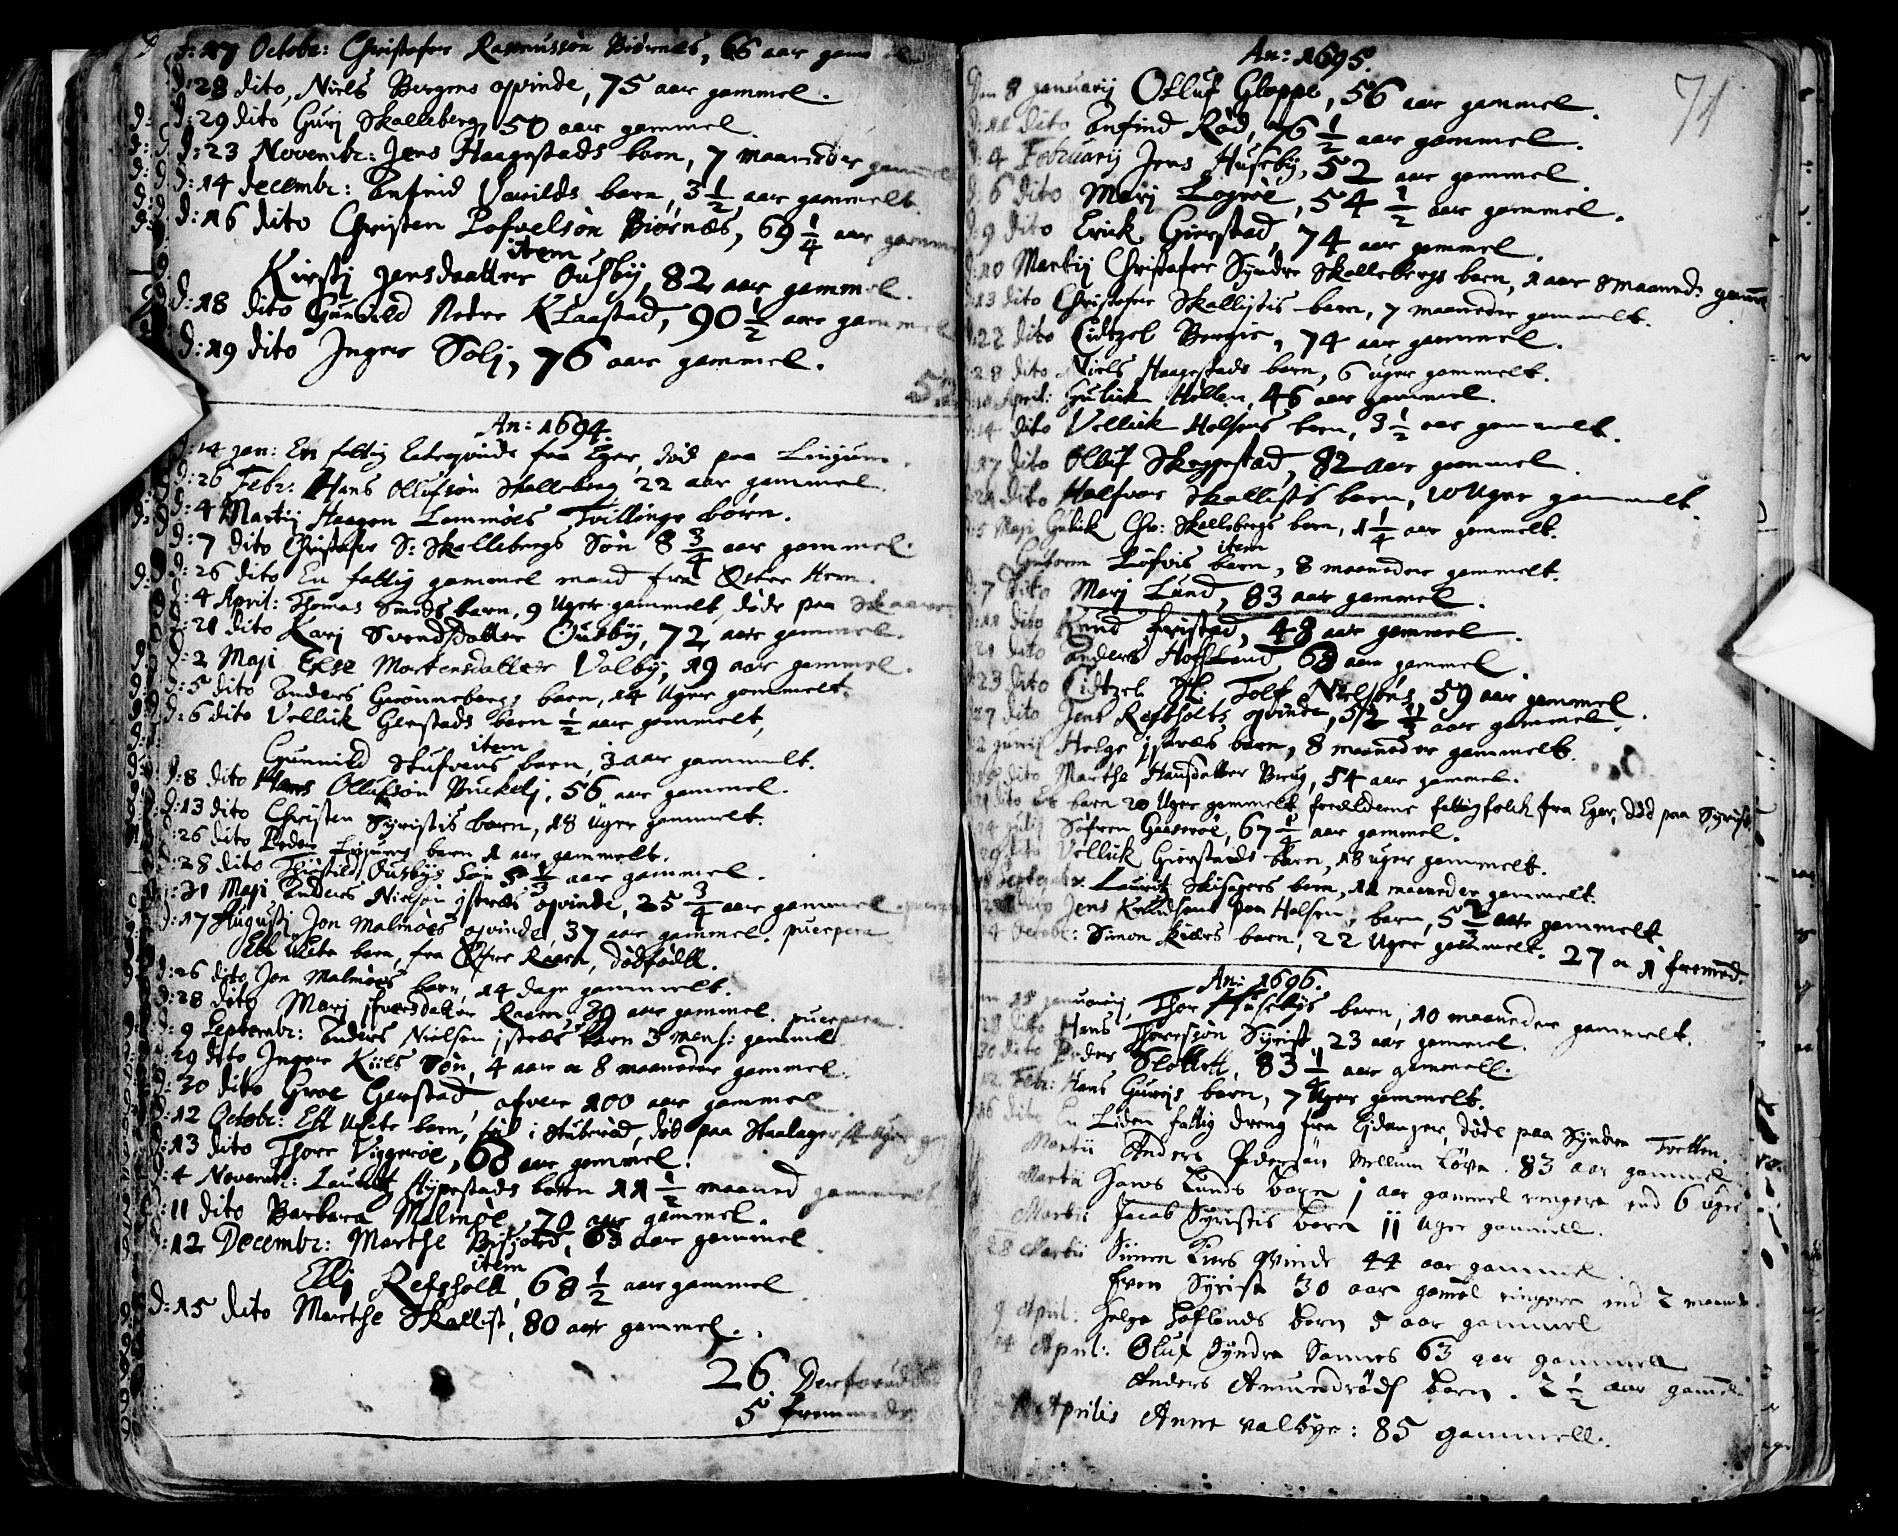 d: 17 Octobr: Christofer Rasmussøn Biørnæs, 66 aar gam
d: 28 dito, Niels Bergens qvinde, 75 aar gammel.
d: 29 dito Gurj Skalleberg, 50 aar gammel.
d: 23 Novembr: Jens Haagestads barn, 7 maaneder gammel
d: 14 decembr: Anfind Varilds barn, 3 1/2 aar gammelt.
d: 16 dito Christen Pofvelsøn Biørnæs, 69 1/4 aar gamm
item
Kirstj Jensdaatter Ousby, 82 aar gammel.
d: 18 dito Gunnild Nedre Klaastad, 90 1/2 aar gammel
d: 19 dito Inger Solj, 76 aar gammel.
An: 1694.
d: 14 jan: En fattig qvinde fra Eger, død paa Linjum.
d: 26 Febr: Hans Ollufsøn Skalleberg 22 aar gammel.
d: 4 Martij Haagen Lammøes Tvillinge børn.
d: 7 dito Christofer S: Skallebergs Søn 8 3/4 aar gammel.
d: 26 dito En fattig gammel mand fra
d: 4 April: Thomas Smeds barn, 9 Uger gammelt, døde paa
d: 21 dito Karj Svendsdatter Ousby, 72 aar gammel.
d: 2 Maji Else Mortensdatter Valby, 19 aar gammel.
d: 5 dito Anders Grønnebergs barn, 14 Uger gammelt.
d: 6 dito Velluk Gierstads barn 1/2 aar gammelt,
item
Gunnild Stufvens barn, 3 aar gammelt.
d: 8 dito Hans Ollufsøn Buckelj, 56 aar gammel.
d: 13 dito Christen Syristis barn, 18 Uger gammelt.
d: 26 dito Peder barn 1 aar gammelt.
d: 28 dito Ousbys Søn 5 1/3 aar gammel.
d: 31 Maji Anders Nielsøn Istræs qvinde, 25 3/4 aar gammel
d: 17 Augusti Jon Malmøes qvinde, 37 aar gammel. puerpera
Ett Uete barn, fra dødfødt.
d: 26 dito Jon Malmøes barn, 14 dage gammelt.
d: 28 dito Marj Ifversdatter Raaen 39 aar gammel. puerpera
d: 9 Septembr: Anders Nielsen Istræs barn 3 mens: gammel
d: 29 dito Inger Kiils Søn, 4 aar oc 8 maaneder gammel.
d: 30 dito Groe Gierstad ofver 100 aar gammel
d: 12 Octobr: Ett Uete barn, i Stuberød, død paa Staalager
d: 13 dito Thore Viggerøe, 68 aar gammel.
d: 4 Novembr: Lauritz Hypestads barn 11 1/2 maaned gammelt
d: 11 dito Barbara Malmøe, 70 aar gammel.
d: 12 Decembr: Marthe 63 aar gammel
item
Ellj Refsholt, 68 1/2 aar gammel
d: 15 dito Marthe Skallist, 80 aar gammel.
26
5 fremmede
74
An: 1695
Den 8 januarij Olluf Gloppe, 56 aar gammel.
d: 11 dito Anfind Rød, 76 1/2 aar gammel.
d: 4 Februarij Jens Huseby, 52 aar gammel.
d: 6 dito Marj Lagrøe, 54 1/2 aar gammel.
d: 9 dito Erick Gierstad, 74 aar gammel.
d: 10 Martij Christofer Syndre Skallebergs barn, 1 aar 8 maaned: gamme
d: 13 dito Christofer Skallistis barn, 7 maaneder gammelt.
d: 22 dito Cidtzel Bergie, 74 aar gammel.
28 dito Niels Haagestads barn, 6 uger gammelt.
d: 10 April: Gulick Hallen, 46 aar gammel.
d: 14 dito Velluk Holsens barn, 3 1/2 aar gammelt.
d: 17 dito Olluf Skeggestad, 82 aar gammel.
d: 21 dito Halfvor Skallistis barn, 10 Uger gammelt.
d: 5 Maji Gulick Chr: Skallebergs barn, 1 1/4 aar gammelt.
item
Guttorm Løfvis barn, 8 maaneder gammelt.
d: 7 dito Marj Lund, 83 aar gammel.
d: 18 dito Knud Fristad, 48 aar gammel.
21 dito Anders Hofland 68 aar gammel.
23 dito Cidtzel Sl: Tolf Nielsøns, 59 aar gammel.
27 dito Jens Refsholts qvinde, 52 1/3 aar gammel.
2 Junij Helge Istræs barn, 8 maaneder gammelt.
dito Marthe Hansdatter Berg, 54 aar gammel.
21 dito Et barn 20 Uger gammelt, forældrene fattigfolck fra Eger, død paa Syrist
24 Julij Søfren Gaaserøe, 67 1/4 aar gammel.
29 dito Velluk Gierstads barn, 18 uger gammelt.
Septembr: Lauritz Skisagers barn, 11 maaneder gammelt.
dito Jens Knudsens paa Holsen, barn, 5 2/3 aar gammelt.
4 Octobr: Simon Kiærs barn, 22 Uger gammelt.
27 oc 1 fremmed.
An: 1696.
18 januarij, Thor Husebys barn, 10 maaneder gammelt.
dito Hans Thoressøn Syrist, 23 aar gammel.
30 dito Peder Slottett, 83 1/4 aar gammell.
12 Febr: Hans Gurijs barn, 7 Uger gammelt.
16 dito En Liden fattig dreng fra Eidanger, døde paa Syndre Tvetten.
Martii Anders Pedersøn Mellum Løve. 83 aar gammel.
Martii Hans Lunds barn j aar gammel ringere end 6 uger
Martii Jacob Syristis barn jj uger gammell.
28 Martii Simen Kiers qvinde 44 aar gammel
Even Syrist 30 aar gamel ringere end 2 maaned
9 April: Helge Hoflands barn 5 aar gammel
14 April: Oluf Syndre Sannes 63 aar gammell
Anders Amundrøds barn. 2 1/2 aar gamel.
Aprilis Anne valbye: 85 gammell.